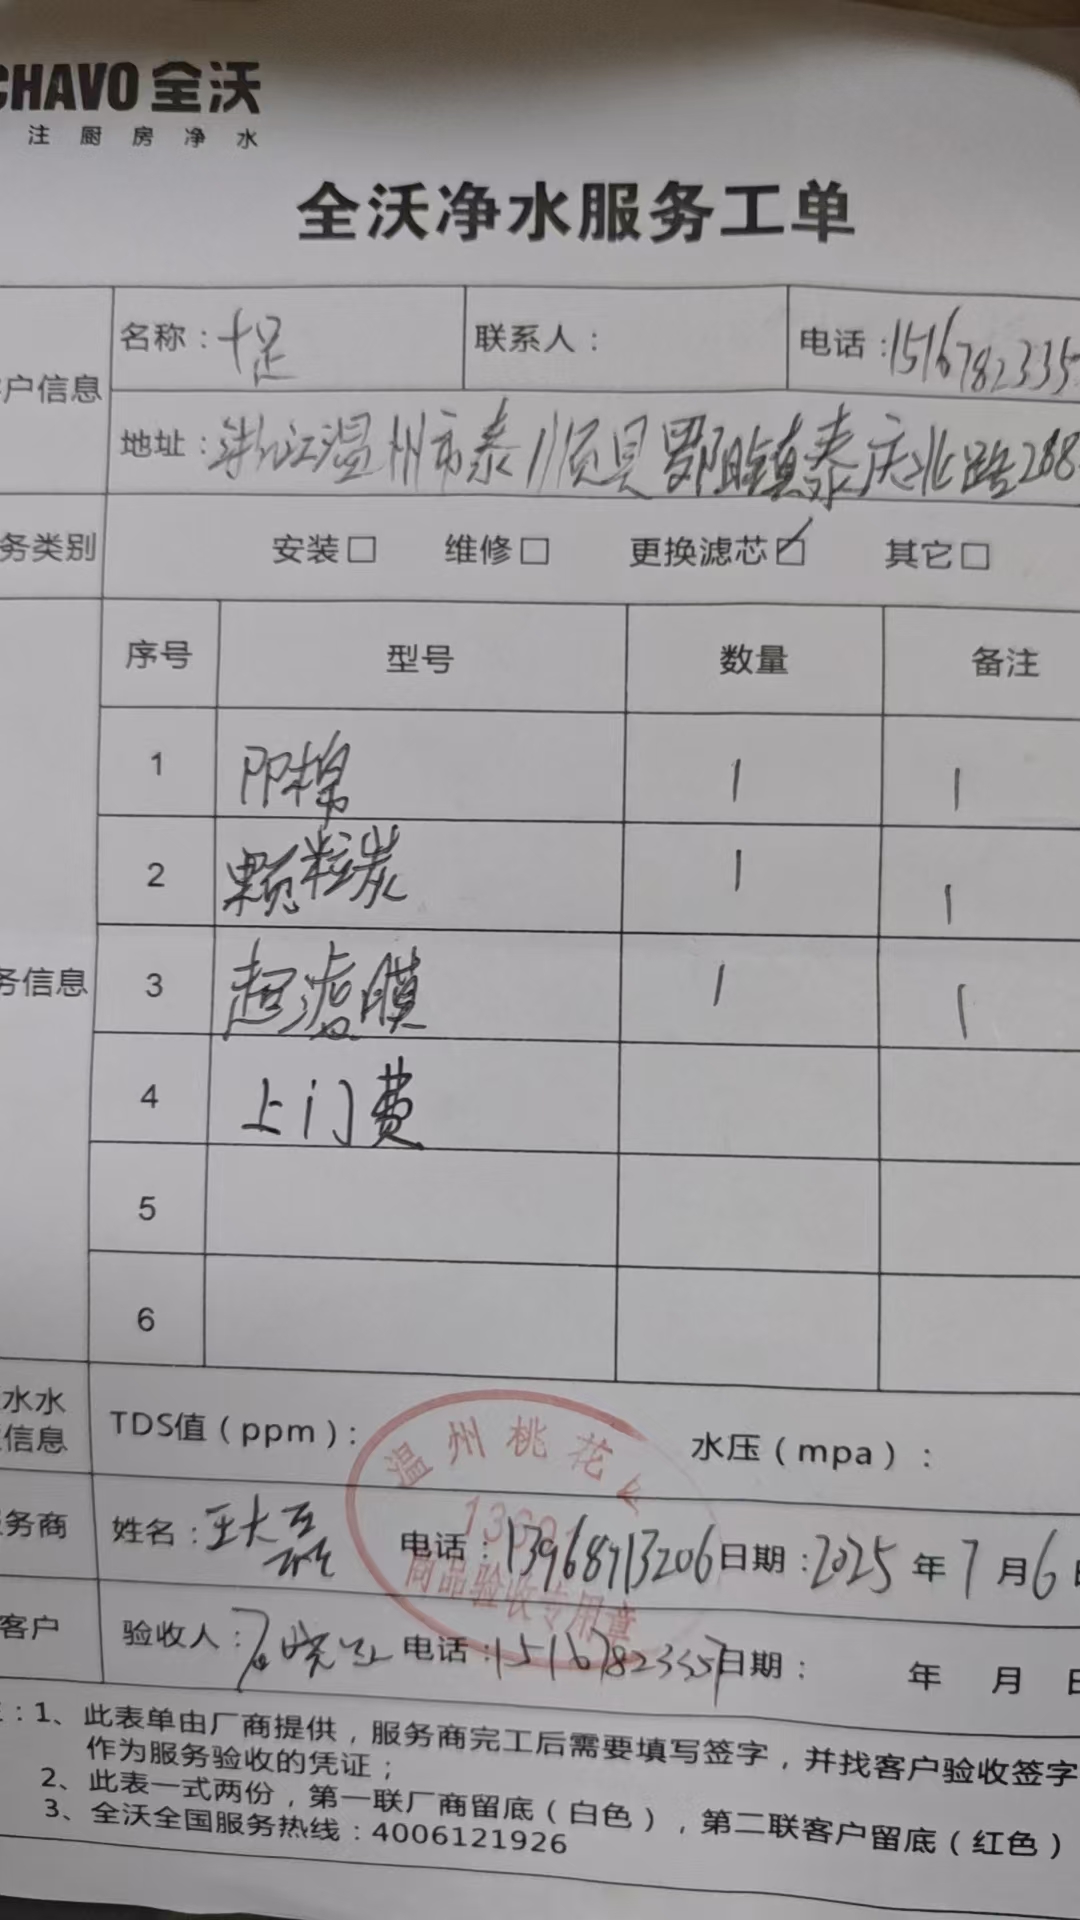 CHAVO 全沃
注厨房净水
全沃净水服务工单
户信息 名称：十足 联系人： 电话：1516782335
地址：浙江温州市泰顺县 镇泰庆北路288
务类别 安装□ 维修□ 更换滤芯☑ 其它□
序号 型号 数量 备注
务信息
1 PP棉 1 1
2 颗粒炭 1 1
3 超滤膜 1 1
4 上门费
5
6
水水
信息
TDS值（ppm）： 水压（mpa）：
温州桃花
商品验收专用章
务商 姓名：王大磊 电话：13968713206 日期：2025年7月6日
客户 验收人： 电话：15167823357 日期： 年 月 日
：1、此表单由厂商提供，服务商完工后需要填写签字，并找客户验收签字
作为服务验收的凭证；
2、此表一式两份，第一联厂商留底（白色），第二联客户留底（红色）
3、全沃全国服务热线：4006121926